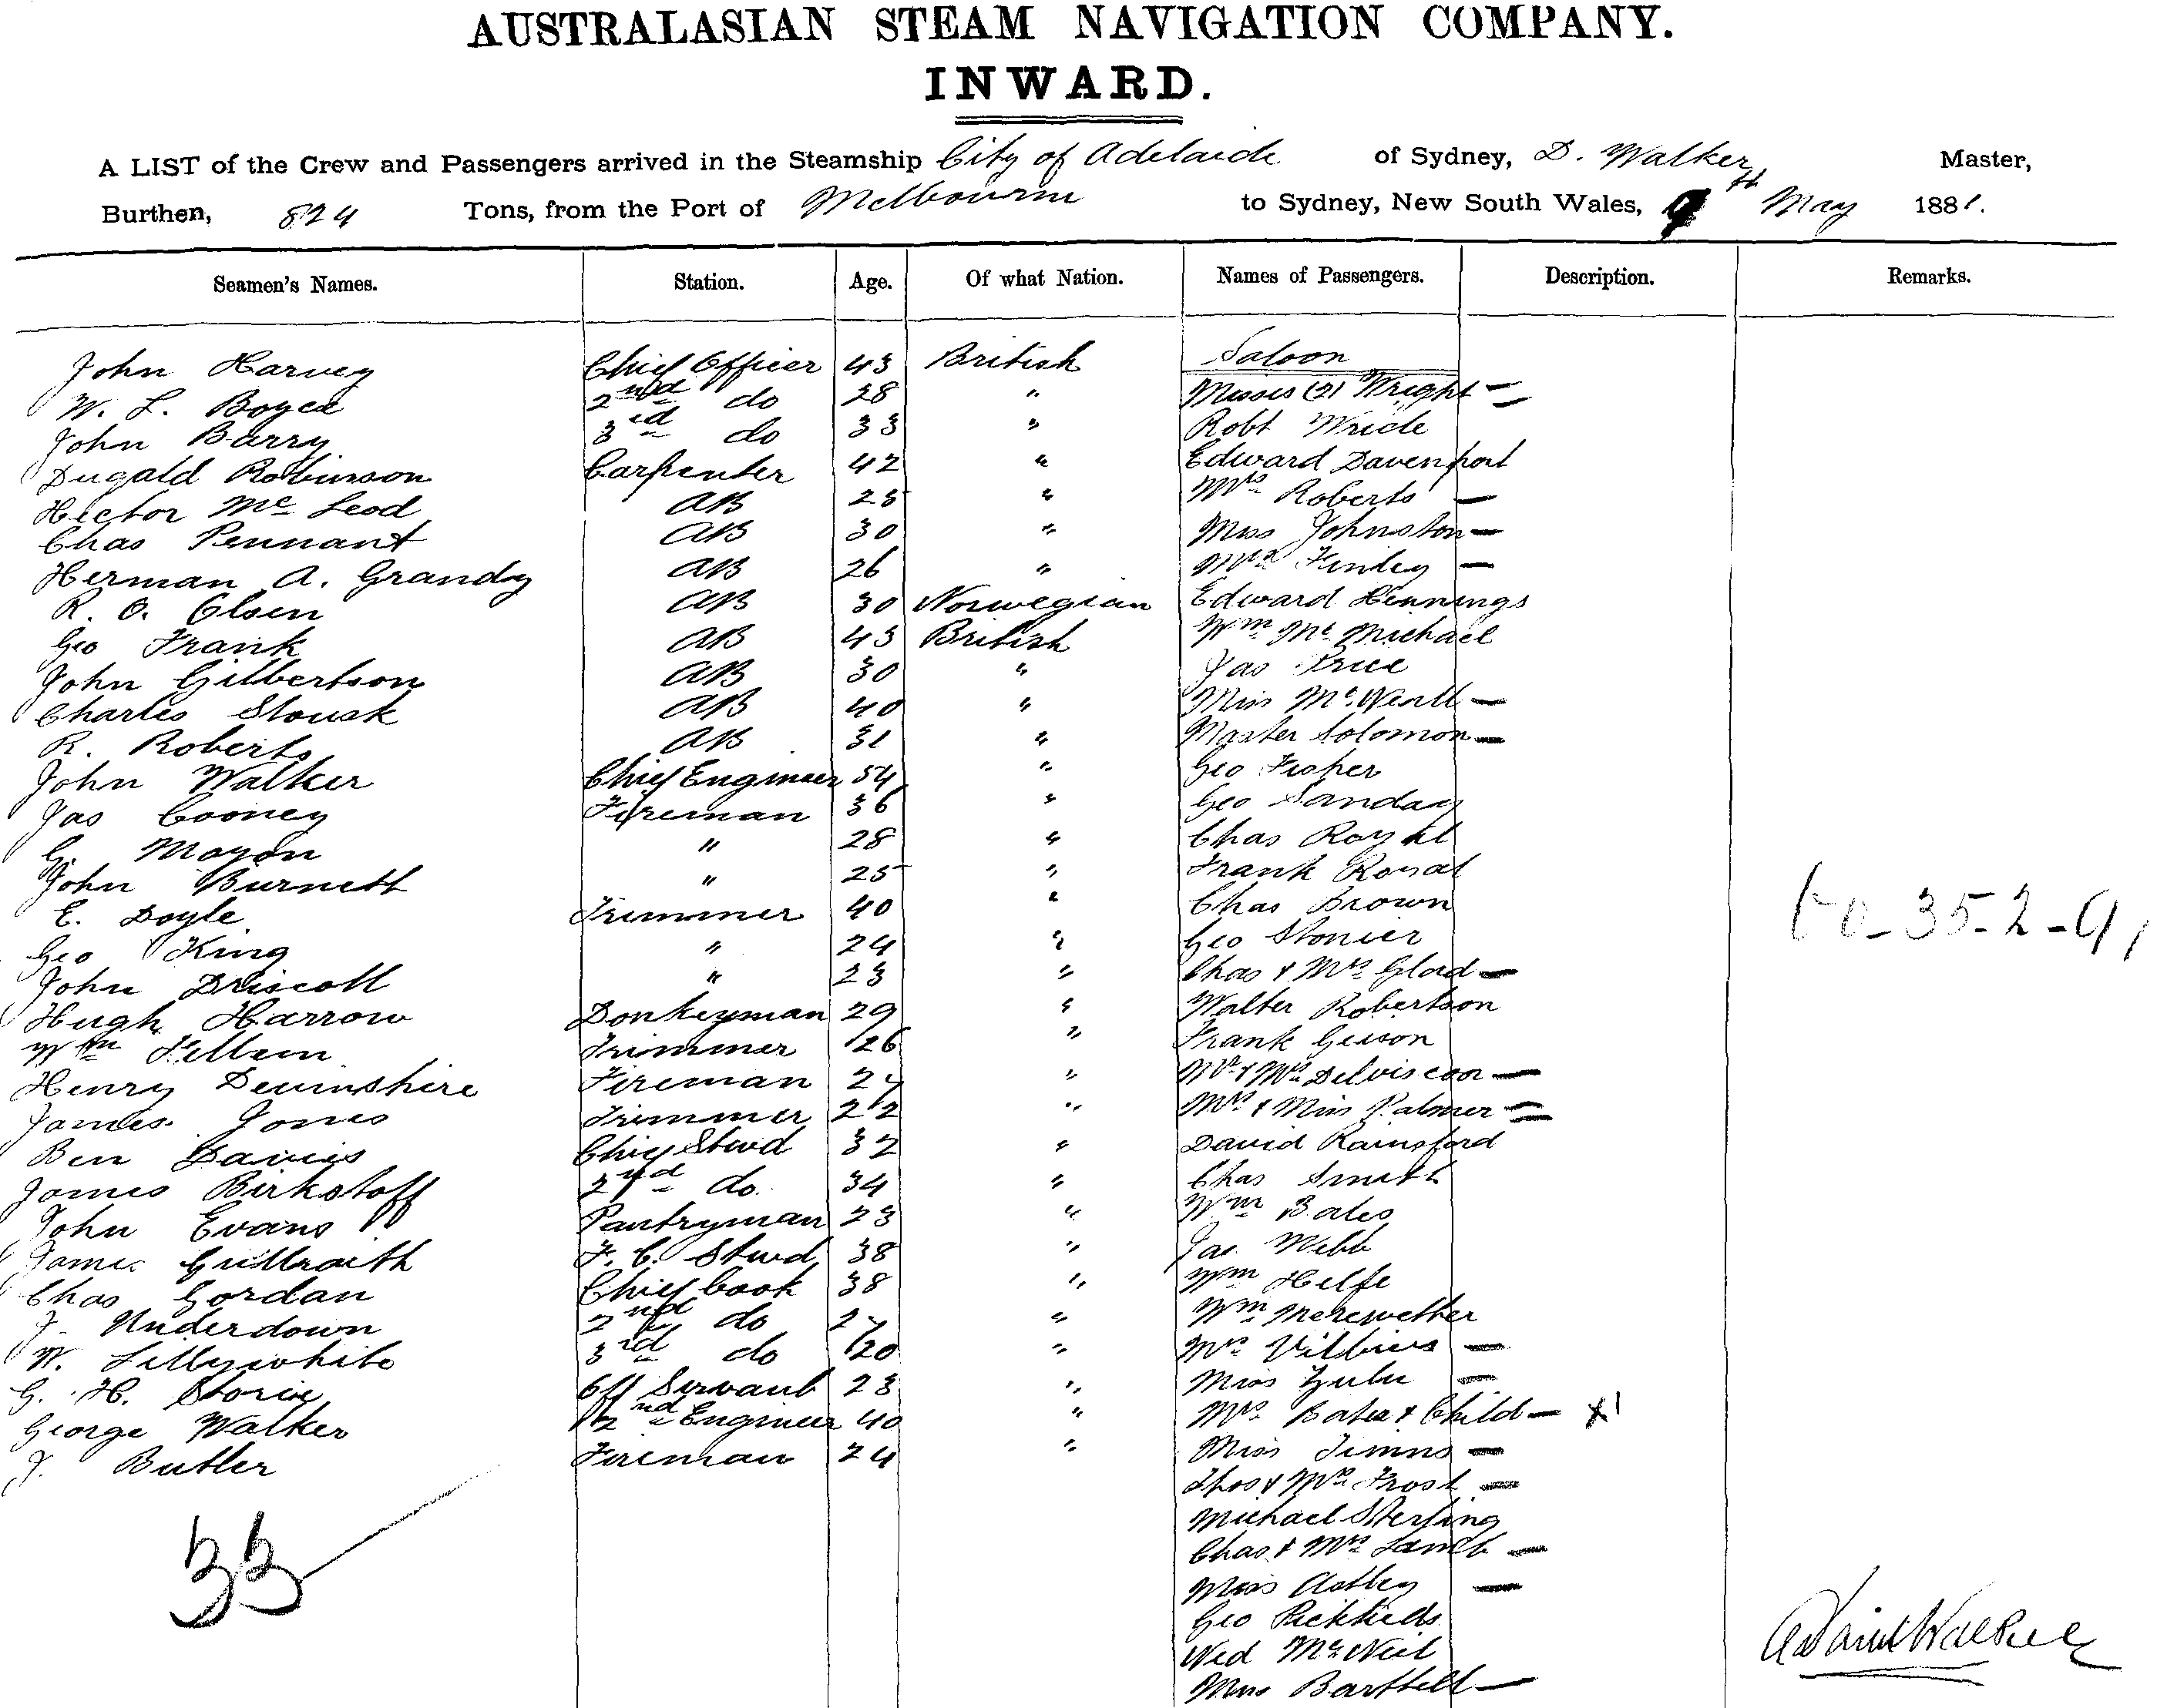 AUSTRALASIAN STEAM NAVIGATION COMPANY.
INWARD.
A LIST of the Crew and Passengers arrived in the Steamship City of Adelaide of Sydney, D. Walker, Master,
Burthen, 824 Tons, from the Port of Melbourne to Sydney, New South Wales, 9th May 1881.
Seamen's Names. Station. Age. Of what Nation. Names of Passengers. Description. Remarks.
John Harvey Chief Officer 43 British Saloon
W. L. Boyce 2nd do 28 " Misses (2) Wright =
John Barry 3rd do 33 " Robt Wricle
Dugald Robinson Carpenter 42 " Edward Davenport
Hector Mc Leod AB 25 " Mrs Roberts -
Chas Pennant AB 30 " Miss Johnston -
Herman A. Grandy AB 26 " Mrs Finley -
R. O. Olsen AB 30 Norwegian Edward Hennings
Geo Frank AB 43 British Wm Mc Michael
John Gilbertson AB 30 " Jas Price
Charles AB 40 " Miss -
R. Roberts AB 31 " Master Solomon -
John Walker Chief Engineer 54 " Geo Fisher
Jas Cooney Fireman 36 " Geo Sanday
G. Moyon " 28 " Chas Royal
John Burnett " 25 " Frank Royal
E. Doyle Trimmer 40 " Chas Brown
Geo King " 24 " Geo Stonier
John Driscoll " 23 " Chas & Mrs Glad -
Hugh Harrow Donkeyman 29 " Walter Robertson
Wm Trimmer 26 " Frank
Henry Devinshire Fireman " Mr & Mrs -
James Jones Trimmer 22 " Mrs & Miss Palmer =
Ben Davies Chief Stwd 32 " David Rainsford
James Birkstoff 2nd do. 34 " Chas Smith
John Evans Pantryman 23 " Wm Bales
James F. C. Stwd 38 " Jas Webb
Chas Gordan Chief Cook 38 " Wm Helfe
J. Underdown 2nd do " Wm Merewether
W. Lillywhite 3rd do 20 " Mrs -
G. H. Storie Servant 23 " Miss Zulu -
George Walker 2nd Engineer 40 " Mrs & Child - x1
J. Butler Fireman 24 " Miss Timms -
Thos & Mrs Frost -
Michael Sterling
Chas & Mrs Lamb -
Miss Astley -
Geo
Ned McNeil
Miss Barttell -
33